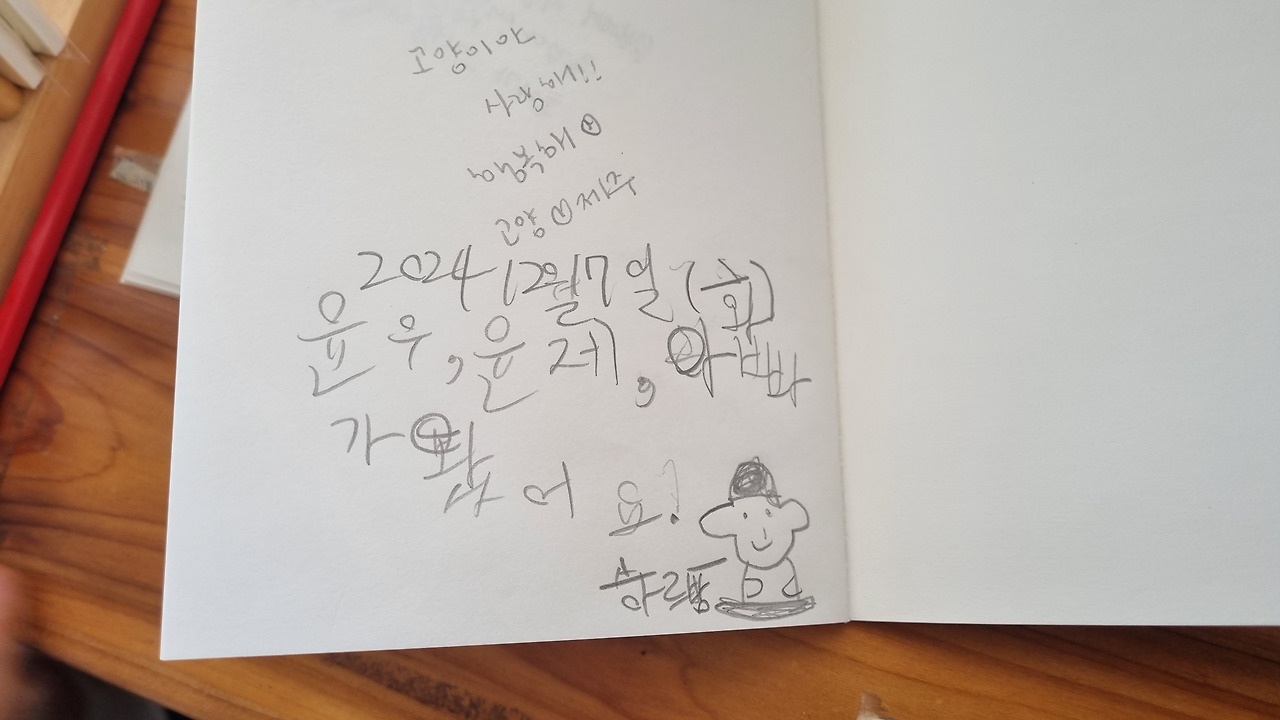 고양이야
사랑해!!
행복해
고양 제주
2024 12월 7일 (화)
윤우, 윤레, 아빠
가 왔어요!
하르방